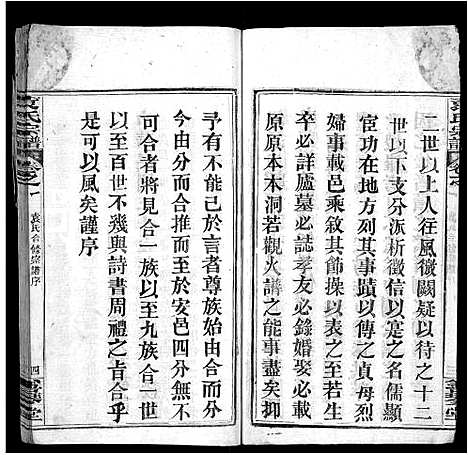 二世以上人往風微闕疑以待之十二
世以下支分派析徵信以寔之名儒顯
宦功在史列其事蹟以傳之貞母烈
婦事載邑乘敘其節操以表之至若生
卒必詳廬墓必誌孝友必錄婚娶必載
原原本本洞若觀火譜之能事盡矣抑
予有不能已於言者尊族始以一分四
今由分而合所以至於安邑四分無不
可合者將見合一族以至九族合一世
以至百世不幾與詩書周禮之旨合乎
是可以風矣謹序
袁氏宗譜
卷之一
袁氏合修宗譜序
四